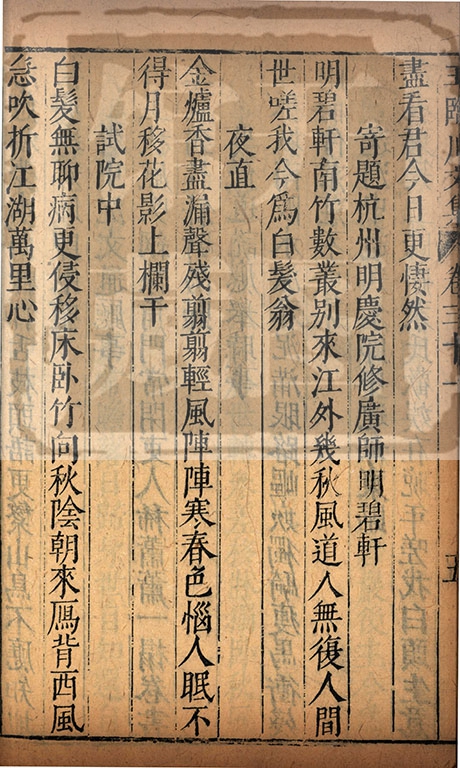 王臨川文集 卷三十一 五
盡看君今日更悽然
寄題杭州明慶院修廣師明碧軒
明碧軒南竹數叢别來江外幾秋風道人無復人間
世嗟我今爲白髮翁
夜直
金爐香盡漏聲殘翦翦輕風陣陣寒春色惱人眠不
得月移花影上欄干
試院中
白髮無聊病更侵移床卧竹向秋陰朝來鴈背西風
急吹折江湖萬里心